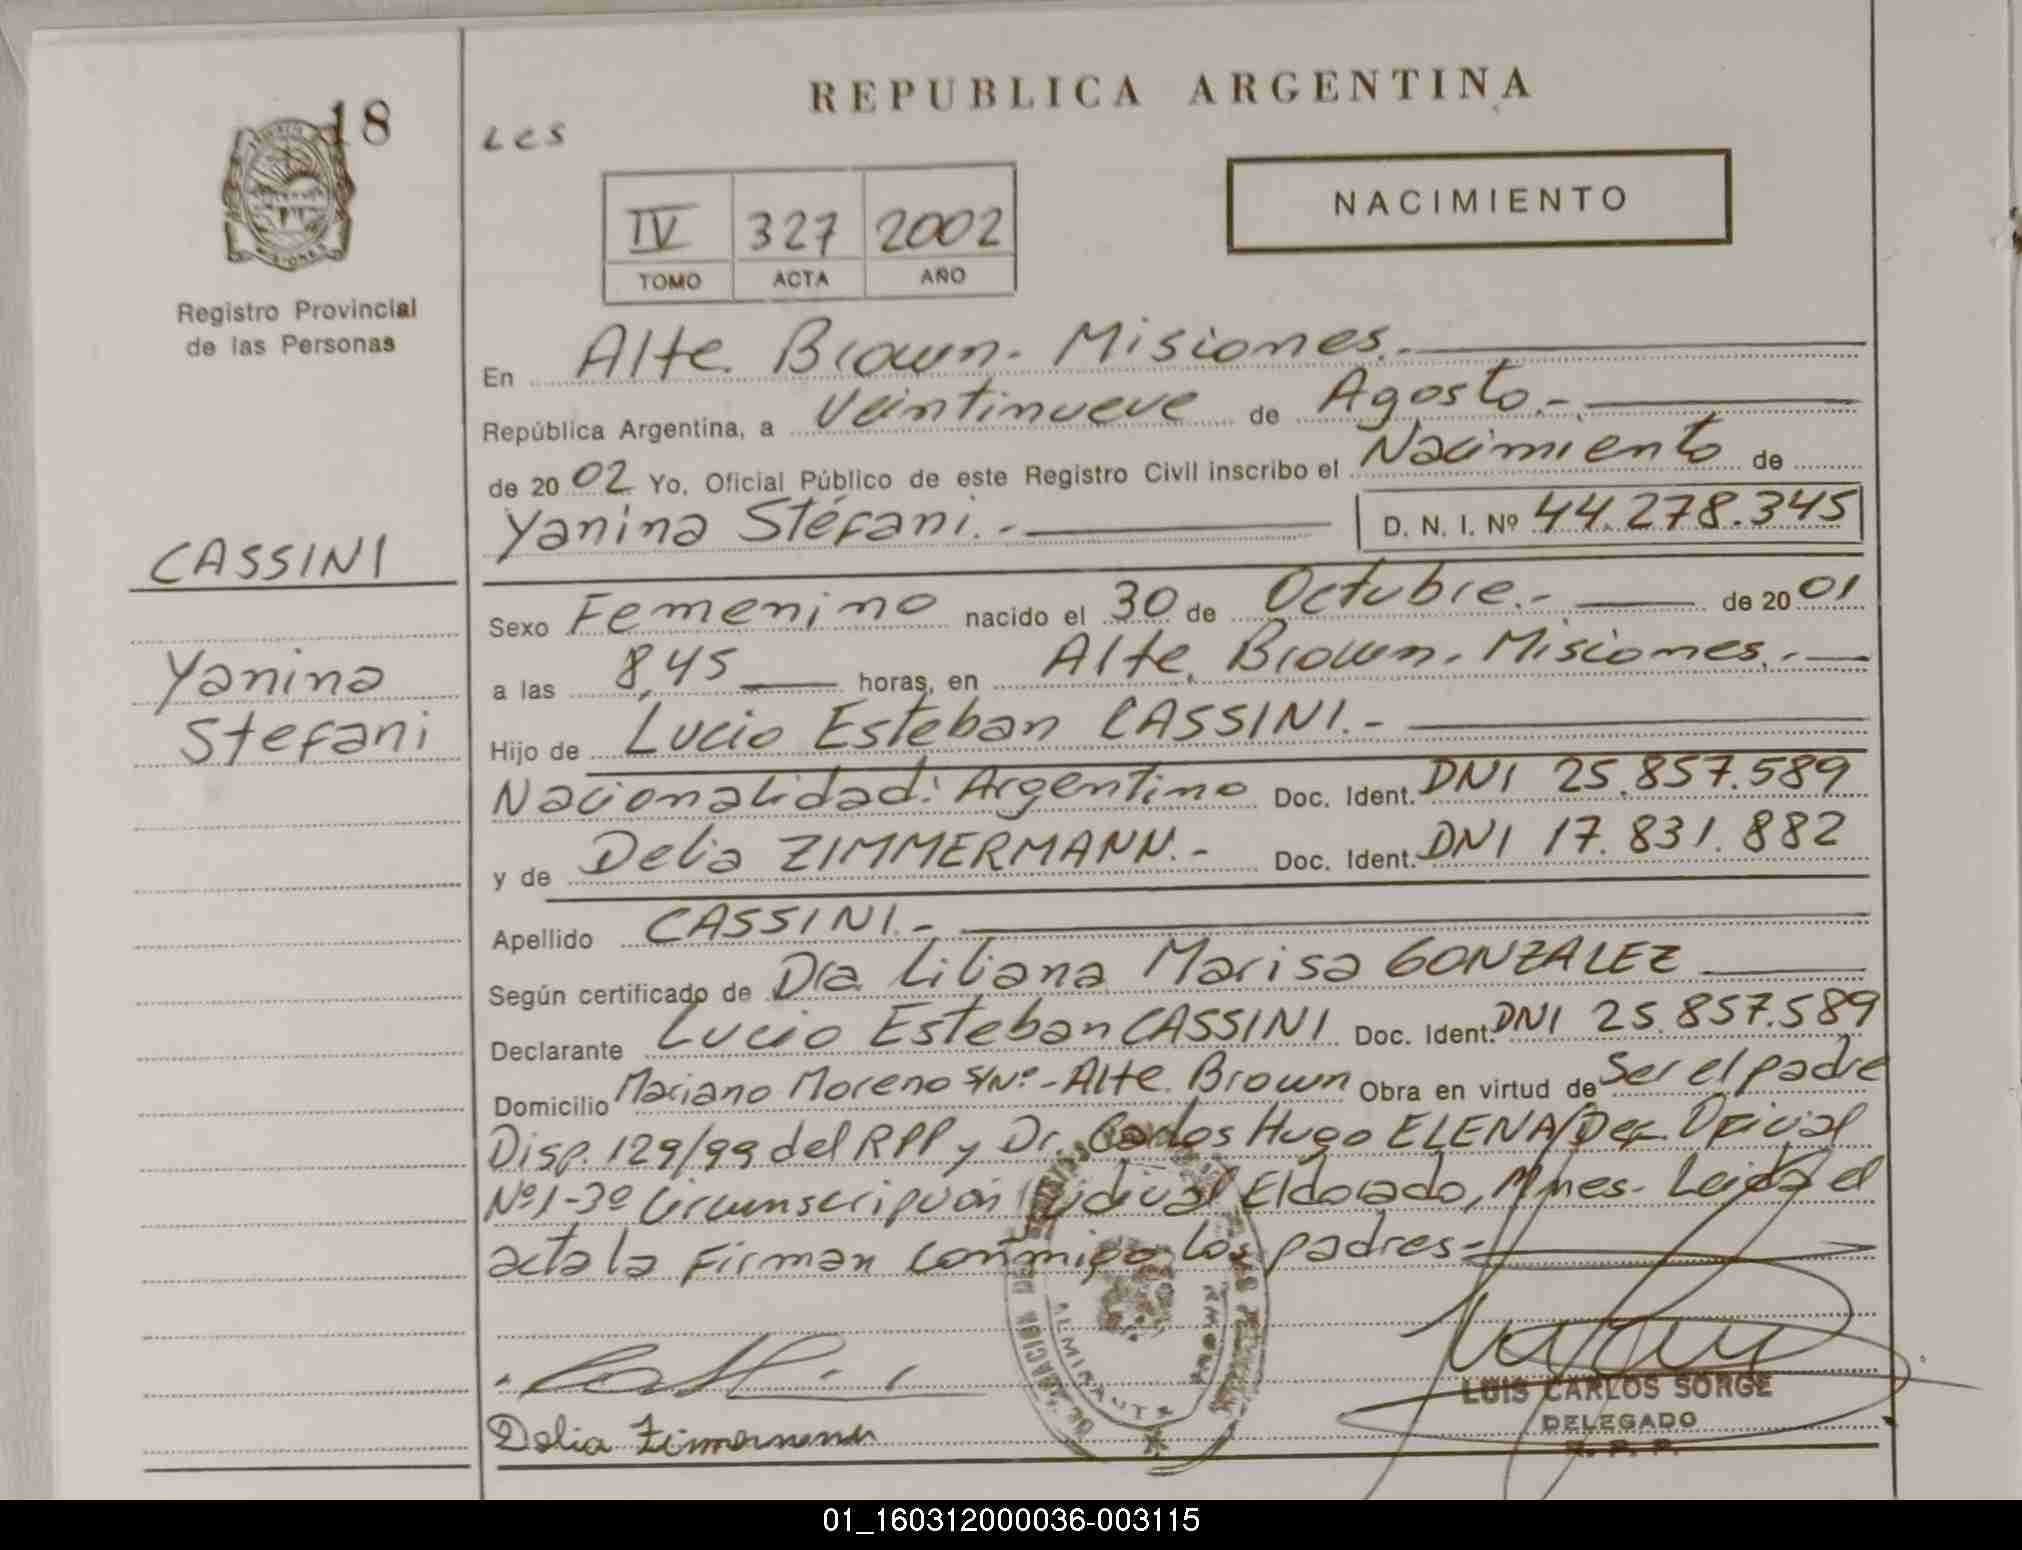 18
REPUBLICA ARGENTINA
Les
NACIMIENTO
IV 327 2002
TOMO ACTA AÑO
Registro Provincial
de las Personas
En Alte. Brown. Misiones.-
República Argentina, a Veintinueve de Agosto.-
de 2002 Yo, Oficial Público de este Registro Civil inscribo el Nacimiento de
Yanina Stéfani.- D. N. I. Nº 44.278.345
CASSINI
Yanina
Stefani
Sexo Femenino nacido el 30 de Octubre.- de 2001
a las 8,45 horas, en Alte. Brown. Misiones.-
Hijo de Lucio Esteban CASSINI.-
Nacionalidad: Argentino Doc. Ident. DNI 25.857.589
y de Delia ZIMMERMANN.- Doc. Ident. DNI 17.831.882
Apellido CASSINI.-
Según certificado de Dra. Liliana Marisa GONZALEZ
Declarante Lucio Esteban CASSINI Doc. Ident. DNI 25.857.589
Domicilio Mariano Moreno S/Nº-Alte. Brown Obra en virtud de Ser el padre
Disp. 129/99 del RPP y Dr. Carlos Hugo ELENA/Def. Oficial
Nº1-3º Circunscripción Judicial Eldorado, Mnes. Leida el
acta la firman conmigo los padres-
ALMIRANTE BROWN
Delia Zimmermann
LUIS CARLOS SORGE
DELEGADO
R. P. P.
01_160312000036-003115